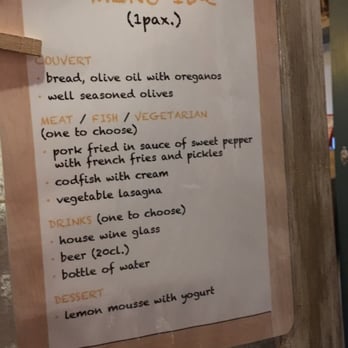 MENU
(1pax.)
COUVERT
· bread, olive oil with oreganos
· well seasoned olives
MEAT / FISH / VEGETARIAN
(one to choose)
· pork fried in sauce of sweet pepper
with french fries and pickles
· codfish with cream
· vegetable lasagna
DRINKS (one to choose)
· house wine glass
· beer (20cl.)
· bottle of water
DESSERT
· lemon mousse with yogurt